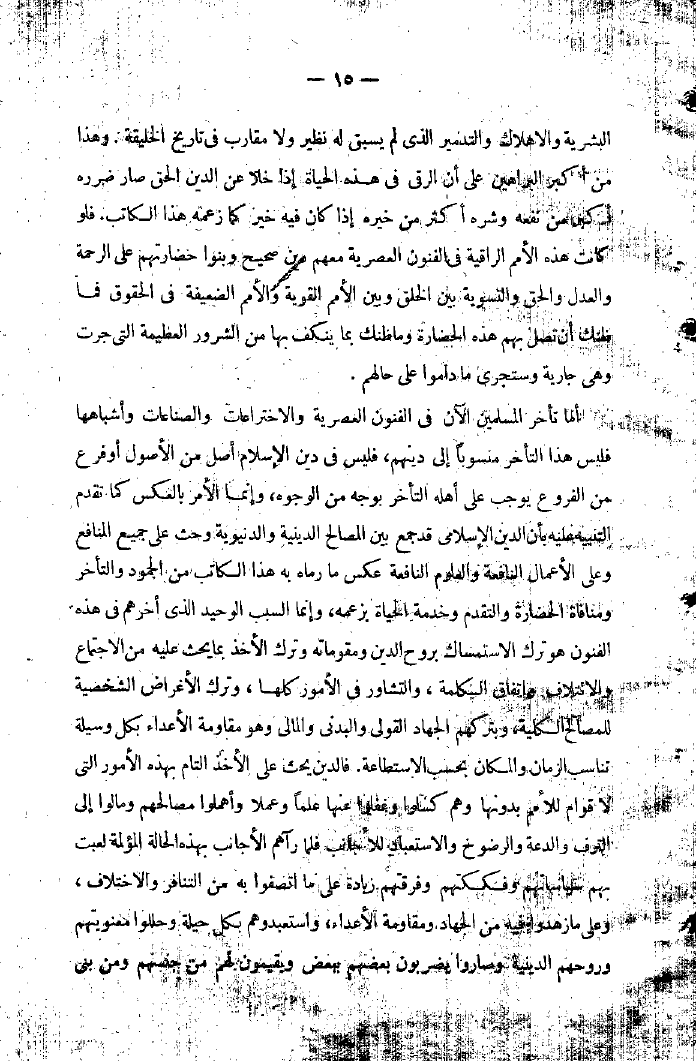 — ١٥ —
البشرية والاهلاك والتدمير الذى لم يسبق له نظير ولا مقارب فى تاريخ الخليقة . وهذا
من أكبر البراهين على أن الرقى فى هذه الحياة إذا خلا عن الدين الحق صار ضرره
أكبر من نفعه وشره أكثر من خيره إذا كان فيه خير كما زعمه هذا الكاتب. فلو
كانت هذه الأمم الراقية فى الفنون العصرية معهم دين صحيح وبنوا حضارتهم على الرحمة
والعدل والحق والتسوية بين الخلق وبين الأمم القوية والأمم الضعيفة فى الحقوق فما
ظنك أن تصل بهم هذه الحضارة وماظنك بما ينكف بها من الشرور العظيمة التى جرت
وهى جارية وستجرى ما داموا على حالهم .
أما تأخر المسلمين الآن فى الفنون العصرية والاختراعات والصناعات وأشباهها
فليس هذا التأخر منسوباً إلى دينهم، فليس فى دين الإسلام أصل من الأصول أوفرع
من الفروع يوجب على أهله التأخر بوجه من الوجوه، وإنما الأمر بالعكس كما تقدم
التنبيه عليه بأن الدين الإسلامى قد جمع بين المصالح الدينية والدنيوية وحث على جميع المنافع
وعلى الأعمال النافعة والعلوم النافعة عكس ما رماه به هذا الكاتب من الجمود والتأخر
ومنافاة الحضارة والتقدم وخدمة الحياة بزعمه، وإنما السبب الوحيد الذى أخرهم فى هذه
الفنون هو ترك الاستمساك بروح الدين ومقوماته وترك الأخذ بما يحث عليه من الاجتماع
والائتلاف واتفاق الكلمة ، والتشاور فى الأمور كلها ، وترك الأغراض الشخصية
للمصالح الكلية، وبتركهم الجهاد القولى والبدنى والمالى وهو مقاومة الأعداء بكل وسيلة
تناسب الزمان والمكان بحسب الاستطاعة. فالدين يحث على الأخذ التام بهذه الأمور التى
لا قوام للأمم بدونها وهم كسلوا وغفلوا عنها علماً وعملا وأهملوا مصالحهم ومالوا إلى
الترف والدعة والرضوخ والاستعباد للأجانب فلما رآهم الأجانب بهذه الحالة المؤلمة لعبت
بهم سياساتهم وفككتهم وفرقتهم زيادة على ما اتصفوا به من التنافر والاختلاف ،
وعلى مازهدوا فيه من الجهاد ومقاومة الأعداء، واستعبدوهم بكل حيلة وحللوا معنويتهم
وروحهم الدينية وصاروا يضربون بعضهم ببعض ويقيمون لهم من جنسهم ومن بنى